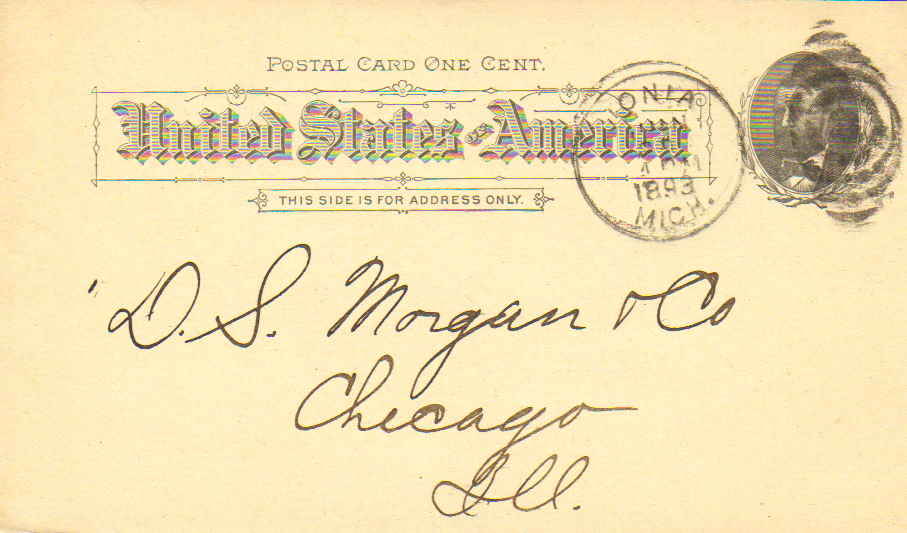 POSTAL CARD ONE CENT.
United States OF America
THIS SIDE IS FOR ADDRESS ONLY.
IONIA
1893
MICH.
D. S. Morgan & Co
Chicago
Ill.